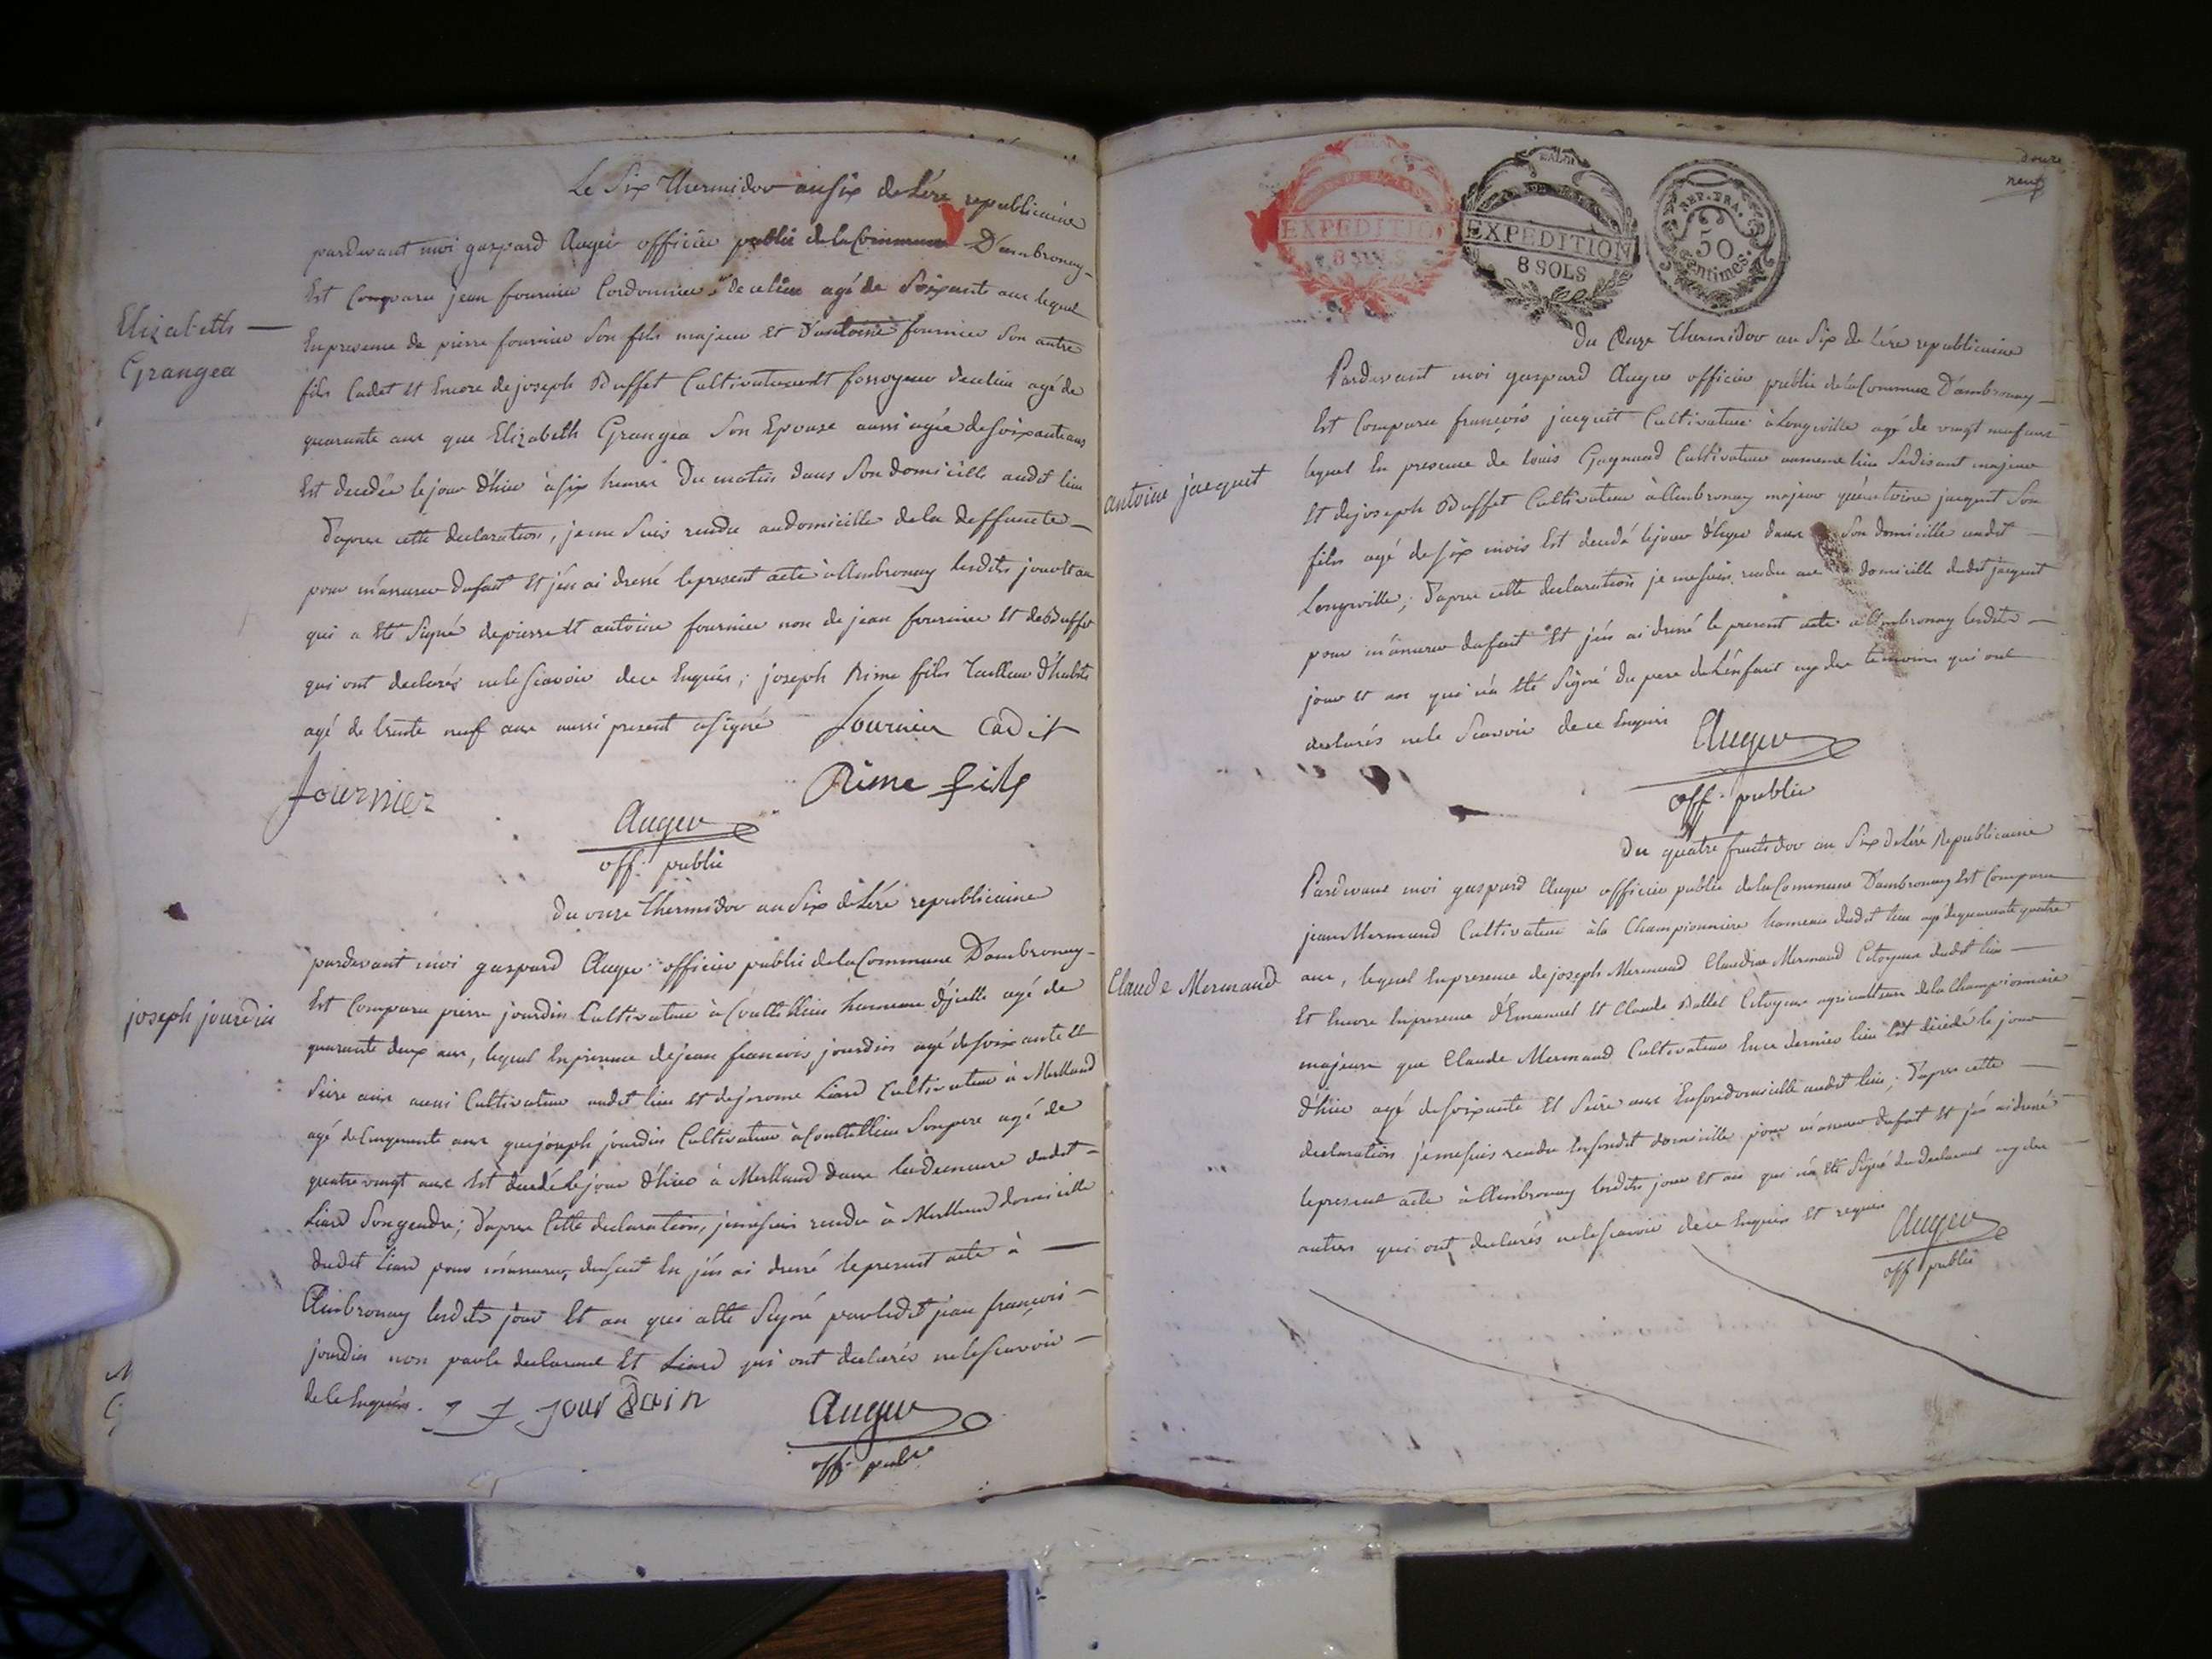 Le Six Thermidor an six de L'ére republicaine
pardevant moi gaspard Auger officier public de la Commune D'ambronay
Est Comparu jean fournier Cordonnier de ce lieu agé de Soixante ans lequel
En presence de pierre fournier Son fils majeur et D'antoine fournier Son autre
fils Cadet et Encore de joseph Buffet Cultivateur et fossoyeur de ce lieu agé de
quarante ans que Elizabeth Grangea Son Epouse aussi agée de soixante ans
Est decedée le jour d'hier à six heures Du matin dans Son domicille audit lieu
D'apres cette declaration, je me Suis rendu au domicille de la deffunte
pour m'assurer du fait Et j'en ai dressé le present acte à Ambronay lesdits jour et an
qui a Eté Signé de pierre Et antoine fournier non de jean fournier Et de Buffet
qui ont declarés ne le Scavoir de ce Enquis; joseph Rime fils Tailleur d'habits
agé de trente neuf ans aussi present a signé fournier Cadit
Elizabeth
Grangea
fournier
Rime fils
Auger
off. public
Du onze Thermidor an Six de L'ére republicaine
pardevant moi gaspard Auger officier public de la Commune D'ambronay
Est Comparu pierre jourdin Cultivateur à Coutellieu hameau d'jcelle agé de
joseph jourdin
quarante deux ans, lequel En presence de jean francois jourdin agé de soixante Et
Seize ans aussi Cultivateur audit lieu et de jerome Liard Cultivateur à Merlland
agé de Cinquante ans que joseph jourdin Cultivateur à Coutellieu Son pere agé de
quatre vingt ans Est decedé le jour d'hier à Merlland dans la demeure dudit
Liard Son gendre; D'apres Cette declaration, je me suis rendu à Merlland domicille
dudit Liard pour m'assurer du fait En j'en ai dressé le present acte à
Ambronay lesdits jour Et an qui a Eté Signé par ledit jean françois
jourdin non par le declarant Et Liard qui ont declarés ne le Scavoir
de ce Enquis. J F jourdain
Auger
off. public
douze
neuf
EXPEDITION
8 SOLS
EXPEDITION
8 SOLS
REP. FRA.
50
centimes.
Du Onze Thermidor an Six de L'ére republicaine
Pardevant moi gaspard Auger officier public de la Commune D'ambronay
Est Comparu françois jacquit Cultivateur à Longeville agé de vingt neuf ans
lequel En presence de Louis Cultivateur au meme lieu Se disant majeur
antoine jacquit
Et de joseph Buffet Cultivateur à Ambronay majeur qu'antoine jacquit Son
fils agé de six mois Est decedé le jour d'hyer dans Son domicille audit
Longeville; D'apres cette declaration je me suis rendu au domicille dudit jacquit
pour m'assurer du fait Et j'en ai dressé le present acte à Ambronay lesdits
jour et an qui n'a Eté Signé du pere de L'enfant ny des temoins qui ont
declarés ne le Scavoir de ce Enquis
Auger
off. public
Du quatre fructidor an Six de L'ére Republicaine
Pardevant moi gaspard Auger officier public de la Commune D'ambronay Est Comparu
jean Mermand Cultivateur à la Championniere hameau dudit lieu agé de quarante quatre
ans, lequel En presence de joseph Mermand Claudine Mermand Citoyens dudit lieu
Claude Mermand
Et Encore En presence d'Emanuel Et Claude Ballet Citoyens agriculteurs de la Championniere
majeurs que Claude Mermand Cultivateur En ce dernier lieu Est decedé le jour
d'hier agé de soixante Et Seize ans En Son domicille audit lieu; D'apres cette
declaration je me suis rendu En Son dit domicille pour m'assurer du fait Et j'en ai dressé
le present acte à Ambronay lesdits jour Et an qui n'a Eté Signé du declarant ny des
autres qui ont declarés ne le Scavoir de ce Enquis Et requis
Auger
off. public